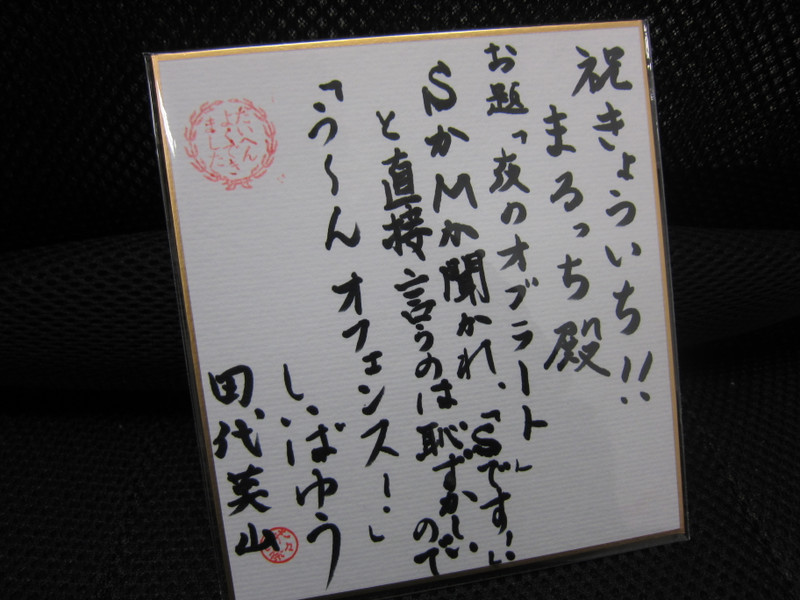 祝きょういち!!
まろっち殿
お題「夜のオブラート」
SかMか聞かれ、「Sです!」
と直接言うのは恥ずかしいので
「う〜ん オフェンス!」
しいばゆう
田代英山
たいへん
よくでき
ました